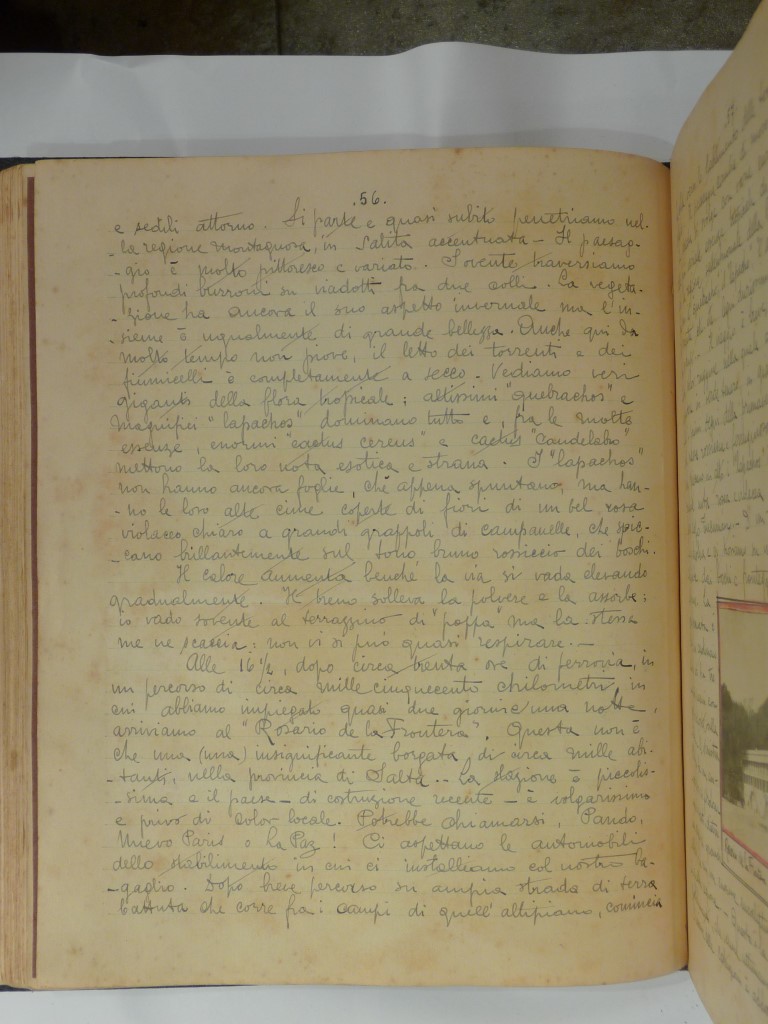 .56.
e sedili attorno. Si parte e quasi subito penetriamo nel-
-la regione montagnosa, in salita accentuata - Il paesag-
-gio è molto pittoresco e variato. Sovente traversiamo
profondi burroni su viadotti fra due colli. La vegeta-
-zione ha ancora il suo aspetto invernale ma l'in-
-sieme è ugualmente di grande bellezza. Anche qui da
molto tempo non piove, il letto dei torrenti e dei
fiumicelli è completamente a secco. Vediamo veri
giganti della flora tropicale; altissimi "quebrachos" e
magnifici "lapachos" dominano tutto e, fra le molte
essenze, enormi "cactus cereus" e cactus "candelabro"
mettono la loro nota esotica e strana. I "lapachos"
non hanno ancora foglie, chè appena spuntano, ma han-
-no le loro alte cime coperte di fiori di un bel rosa
violaceo chiaro a grandi grappoli di campanelle, che spic-
-cano brillantemente sul tono bruno rossiccio dei boschi.
Il calore aumenta benchè la via si vada elevando
gradualmente. Il treno solleva la polvere e la assorbe;
io vado sovente al terrazzino di "poppa" ma la stessa
me ne scaccia: non vi si può quasi respirare. -
Alle 16 1/2, dopo circa trenta ore di ferrovia, in
un percorso di circa mille cinquecento chilometri, in
cui abbiamo impiegato quasi due giorni e una notte,
arriviamo al "Rosario de la Frontera". Questa non è
che una (una) insignificante borgata, di circa mille abi-
-tanti, nella provincia di Salta. - La stazione è piccolis-
-sima e il paese - di costruzione recente - è volgarissimo
e privo di color locale. Potrebbe chiamarsi, Pando,
Nuevo Paris o La Paz! Ci aspettano le automobili
dello stabilimento in cui ci installiamo col nostro ba-
-gaglio. Dopo breve percorso su ampia strada di terra
battuta che corre fra i campi di quell'altipiano, comincia
57